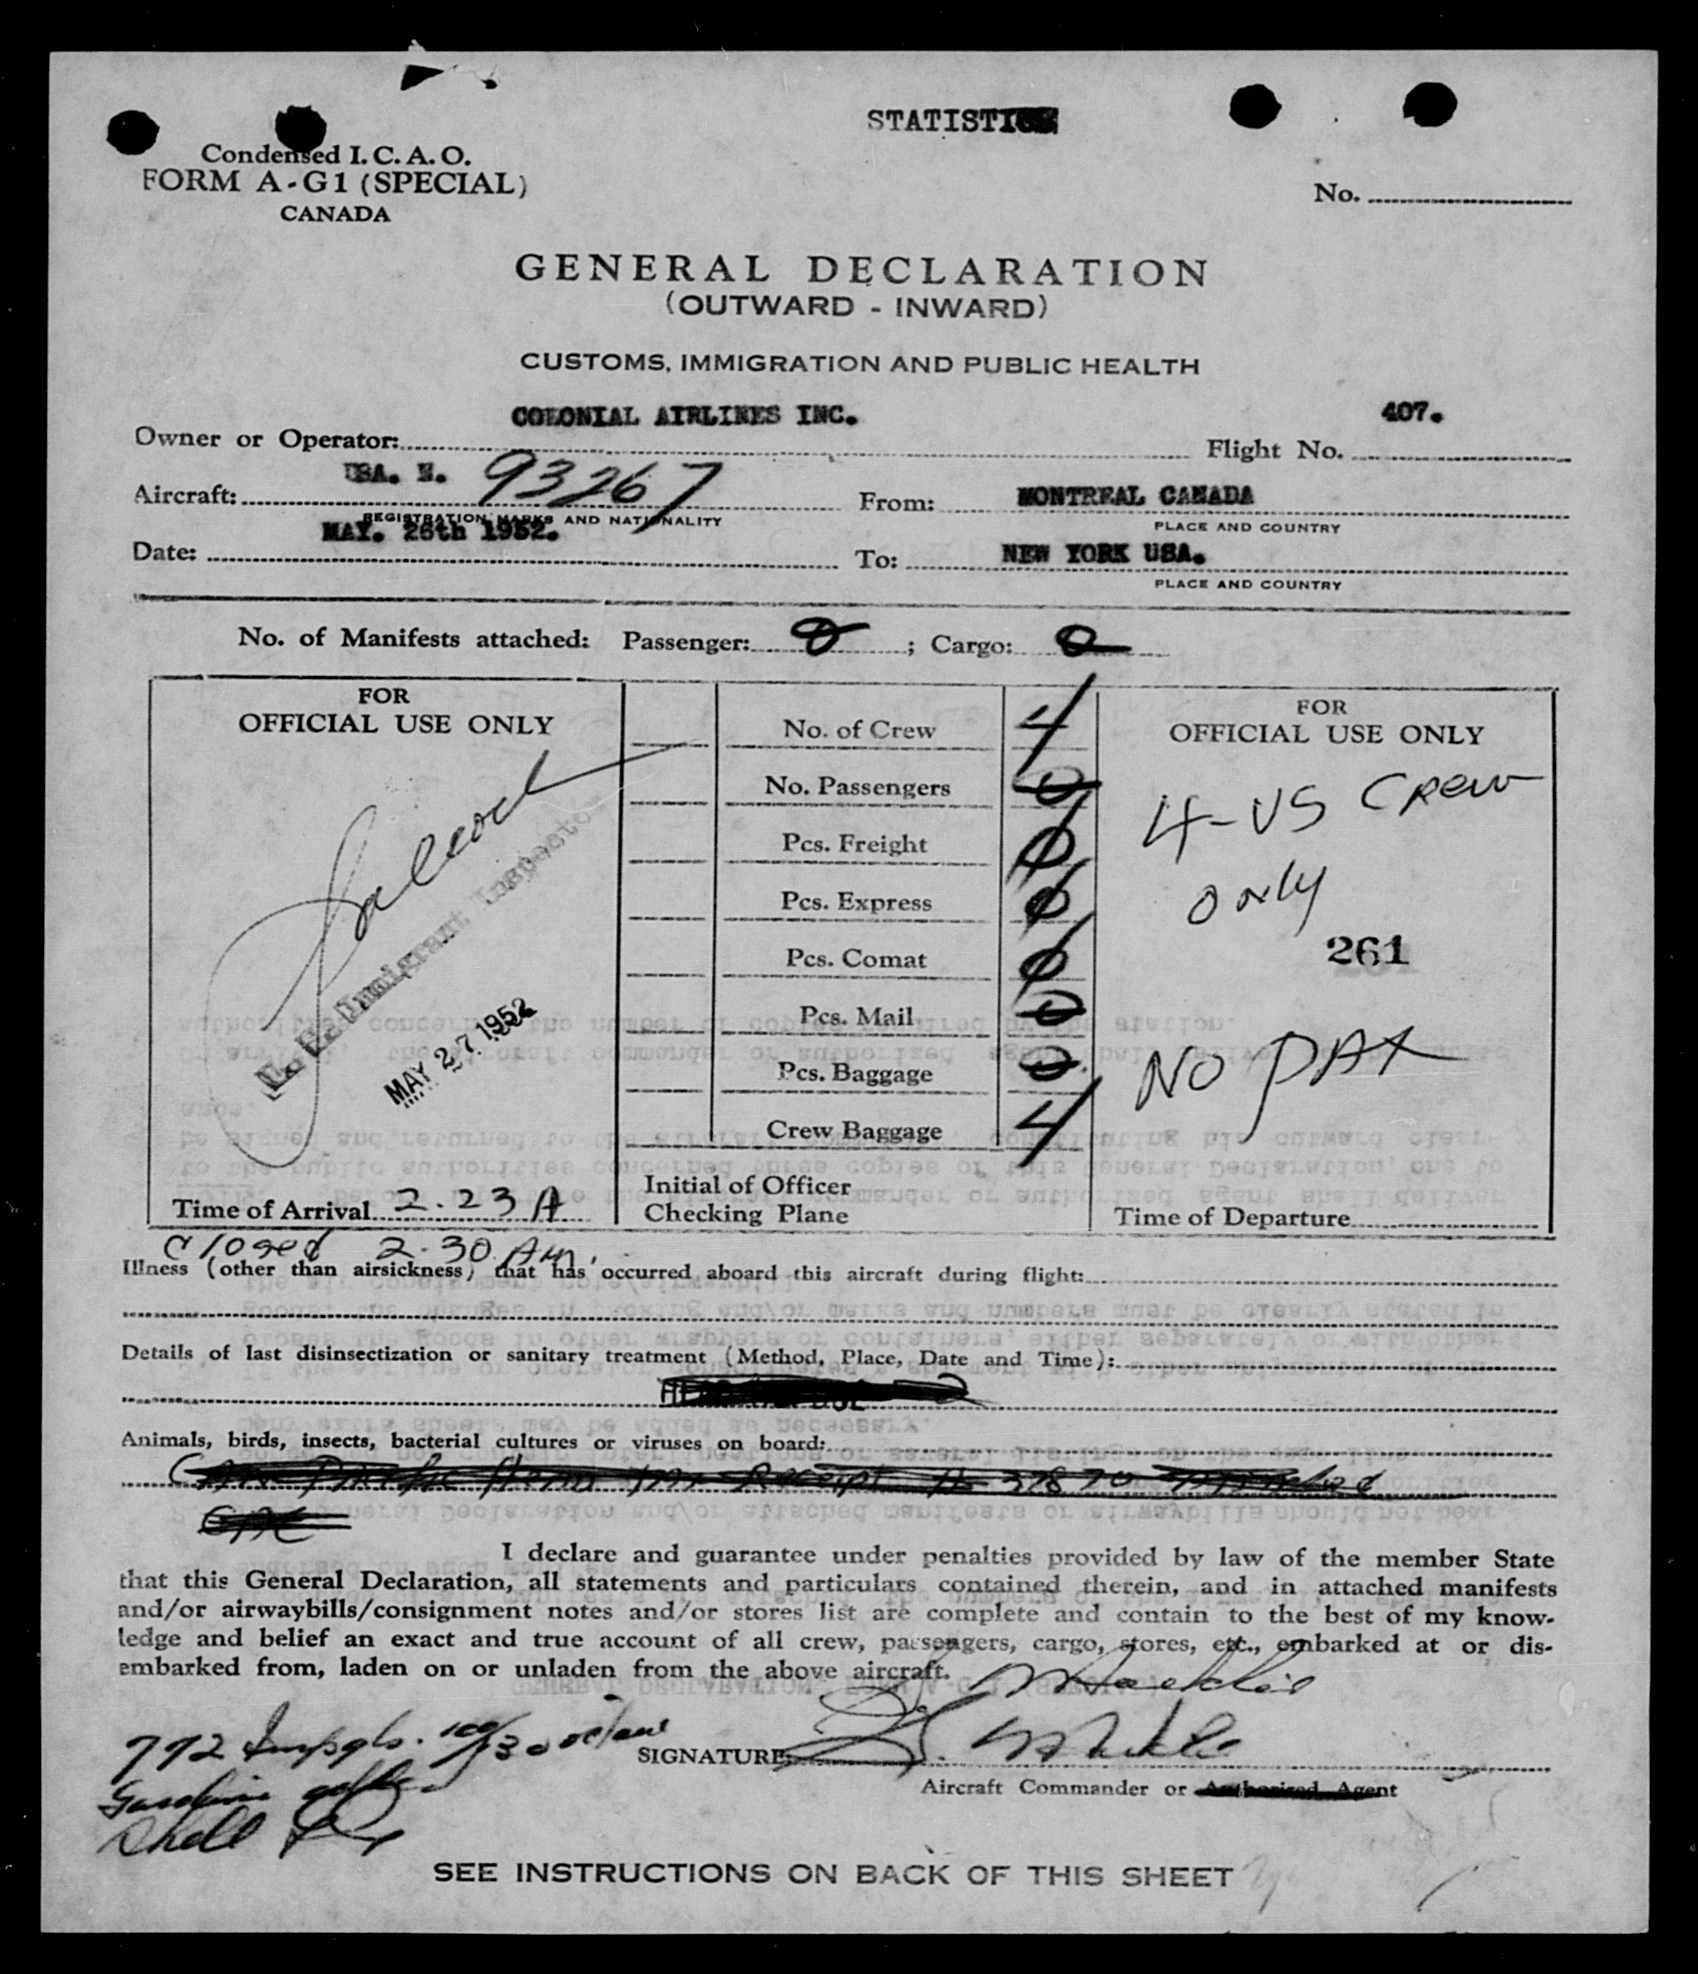 STATISTICS
Condensed I. C. A. O.
FORM A-G1 (SPECIAL)
CANADA
No.
GENERAL DECLARATION
(OUTWARD - INWARD)
CUSTOMS, IMMIGRATION AND PUBLIC HEALTH
COLONIAL AIRLINES INC.
407.
Owner or Operator:
Flight No.
USA. N. 93267
Aircraft:
From: MONTREAL CANADA
REGISTRATION MARKS AND NATIONALITY
PLACE AND COUNTRY
MAY. 26th 1952.
Date:
To: NEW YORK USA.
PLACE AND COUNTRY
No. of Manifests attached: Passenger: 0 ; Cargo: 0
FOR
OFFICIAL USE ONLY
Immigrant Inspector
MAY 27 1952
Time of Arrival 2.23 A
No. of Crew 4
No. Passengers 0
Pcs. Freight 0
Pcs. Express 0
Pcs. Comat 0
Pcs. Mail 0
Pcs. Baggage 0
Crew Baggage 4
Initial of Officer
Checking Plane
FOR
OFFICIAL USE ONLY
4-US Crew
only
261
NO PAX
Time of Departure
Closed 2.30 AM.
Illness (other than airsickness) that has occurred aboard this aircraft during flight:
Details of last disinsectization or sanitary treatment (Method, Place, Date and Time):
Animals, birds, insects, bacterial cultures or viruses on board:
Receipt 37870
I declare and guarantee under penalties provided by law of the member State
that this General Declaration, all statements and particulars contained therein, and in attached manifests
and/or airwaybills/consignment notes and/or stores list are complete and contain to the best of my know-
ledge and belief an exact and true account of all crew, passengers, cargo, stores, etc., embarked at or dis-
embarked from, laden on or unladen from the above aircraft.
772 Imp gls. 100/130 octane
SIGNATURE:
Gasoline
Aircraft Commander or Authorized Agent
Shell
SEE INSTRUCTIONS ON BACK OF THIS SHEET